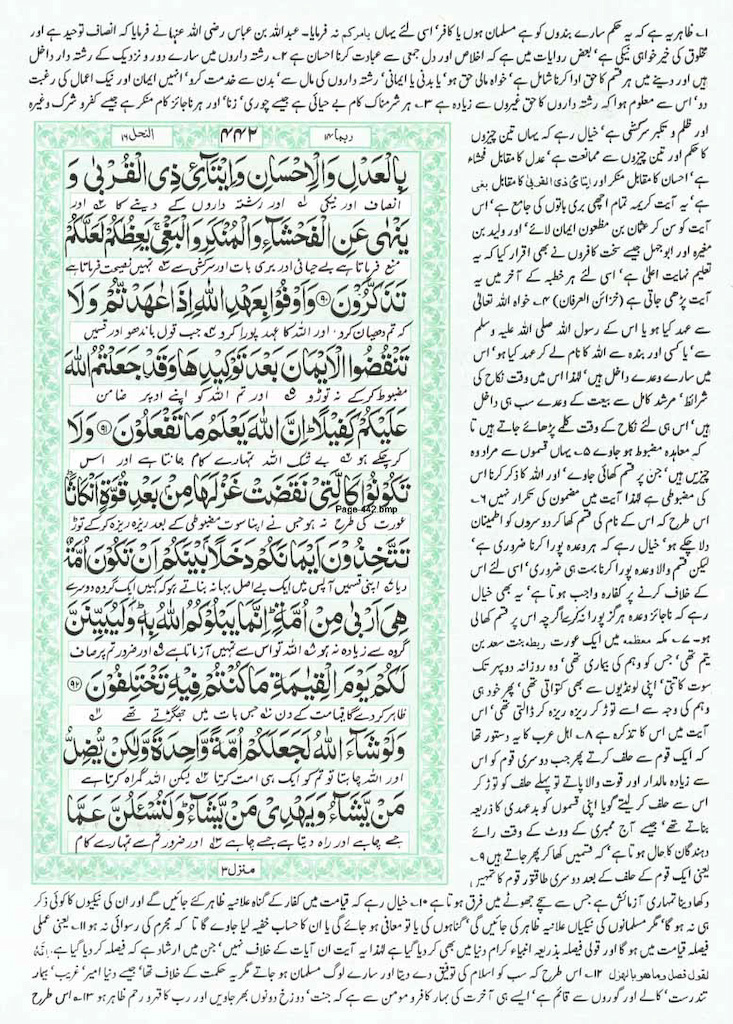 ۱۔ ظاہر یہ ہے کہ یہ حکم سارے بندوں کو ہے مسلمان ہوں یا کافر' اسی لئے یہاں یامرکم نہ فرمایا۔ عبداللہ بن عباس رضی اللہ عنہما نے فرمایا کہ انصاف توحید ہے اور
مخلوق کی خیر خواہی نیکی ہے' بعض روایات میں ہے کہ اخلاص اور دل جمعی سے عبادت کرنا احسان ہے ۲۔ رشتہ داروں میں سارے دور و نزدیک کے رشتہ دار داخل
ہیں اور دینے میں ہر قسم کا حق ادا کرنا شامل ہے' خواہ مالی حق ہو' یا بدنی یا ایمانی' رشتہ داروں کی مال سے' بدن سے خدمت کرو' انہیں ایمان اور نیک اعمال کی رغبت
دو' اس سے معلوم ہوا کہ رشتہ داروں کا حق غیروں سے زیادہ ہے ۳۔ ہر شرمناک کام بے حیائی ہے جیسے چوری' زنا' اور ہر ناجائز کام منکر ہے جیسے کفر و شرک وغیرہ
اور ظلم و تکبر سرکشی ہے' خیال رہے کہ یہاں تین چیزوں
کا حکم اور تین چیزوں سے ممانعت ہے' عدل کا مقابل فحشاء
ہے' احسان کا مقابل منکر اور ایتائ ذی القربیٰ کا مقابل بغی
ہے' یہ آیت کریمہ تمام اچھی بری باتوں کی جامع ہے' اس
آیت کو سن کر عثمان بن مظعون ایمان لائے' اور ولید بن
مغیرہ اور ابوجہل جیسے سخت کافروں نے بھی اقرار کیا کہ یہ
تعلیم نہایت اعلیٰ ہے' اسی لئے ہر خطبہ کے آخر میں یہ
آیت پڑھی جاتی ہے (خزائن العرفان) ۴۔ خواہ اللہ تعالیٰ
سے عہد کیا ہو یا اس کے رسول اللہ صلی اللہ علیہ وسلم
سے' یا کسی اور بندہ سے اللہ کا نام لے کر عہد کیا ہو' اس
میں سارے وعدے داخل ہیں' لہٰذا اس میں وقت نکاح کی
شرائط' مرشد کامل سے بیعت کے وعدے سب ہی داخل
ہیں' اس ہی لئے نکاح کے وقت کلمے پڑھائے جاتے ہیں تا
کہ معاہدہ مضبوط ہو جاوے ۵۔ یہاں قسموں سے مراد وہ
چیزیں ہیں' جن پر قسم کھائی جاوے' اور اللہ کا ذکر کرنا اس
کی مضبوطی ہے لہٰذا آیت میں مضمون کی تکرار نہیں ۶۔
اس طرح کہ اس کے نام کی قسم کھا کر دوسروں کو اطمینان
دلا چکے ہو' خیال رہے کہ ہر وعدہ پورا کرنا ضروری ہے'
لیکن قسم والا وعدہ پورا کرنا بہت ہی ضروری' اسی لئے اس
کے خلاف کرنے پر کفارہ واجب ہوتا ہے' یہ بھی خیال
رہے کہ ناجائز وعدہ ہرگز پورا نہ کرے اگرچہ اس پر قسم کھالی
ہو۔ ۷۔ مکہ معظمہ میں ایک عورت ریطہ بنت سعد بن
یتم تھی' جس کو وہم کی بیماری تھی' وہ روزانہ دوپہر تک
سوت کاتتی' اپنی لونڈیوں سے بھی کتواتی تھی' پھر خود ہی
وہم کی وجہ سے اسے توڑ کر ریزہ ریزہ کر ڈالتی تھی' اس
آیت میں اس کا تذکرہ ہے ۸۔ اہل عرب کا یہ دستور تھا
کہ ایک قوم سے حلف کرتے پھر جب دوسری قوم کو اس
سے زیادہ مالدار اور قوت والا پاتے تو پہلے حلف کو توڑ کر
اس سے حلف کر لیتے گویا اپنی قسموں کو بدعہدی کا ذریعہ
بناتے تھے' جیسے آج ممبری کے ووٹ کے وقت رائے
دہندگان کا حال ہوتا ہے' کہ قسمیں کھا کر پھر جاتے ہیں ۹۔
یعنی ایک قوم کے حلف کے بعد دوسری طاقتور قوم کا تمہیں
ربما۱۴ ۴۴۲ النحل۱۶
بِالْعَدْلِ وَالْاِحْسَانِ وَاِيْتَآئِ ذِي الْقُرْبٰى وَ
انصاف اور نیکی ۱ اور رشتہ داروں کے دینے کا ۲ اور
يَنْهٰى عَنِ الْفَحْشَآءِ وَالْمُنْكَرِ وَالْبَغْيِ يَعِظُكُمْ لَعَلَّكُمْ
منع فرماتا ہے بے حیائی اور بری بات اور سرکشی سے ۳ تمہیں نصیحت فرماتا ہے
تَذَكَّرُوْنَ ۹۰ وَاَوْفُوْا بِعَهْدِ اللّٰهِ اِذَا عٰهَدْتُّمْ وَلَا
کہ تم دھیان کرو اور اللہ کا عہد پورا کرو ۴ جب قول باندھو اور قسمیں
تَنْقُضُوا الْاَيْمَانَ بَعْدَ تَوْكِيْدِهَا وَقَدْ جَعَلْتُمُ اللّٰهَ
مضبوط کر کے نہ توڑو ۵ اور تم اللہ کو اپنے اوپر ضامن
عَلَيْكُمْ كَفِيْلًا اِنَّ اللّٰهَ يَعْلَمُ مَا تَفْعَلُوْنَ ۹۱ وَلَا
کر چکے ہو ۶ بے شک اللہ تمہارے کام جانتا ہے اور اس
تَكُوْنُوْا كَالَّتِيْ نَقَضَتْ غَزْلَهَا مِنْۢ بَعْدِ قُوَّةٍ اَنْكَاثًا
Page-442.bmp
عورت کی طرح نہ ہو جس نے اپنا سوت مضبوطی کے بعد ریزہ ریزہ کر کے توڑ
تَتَّخِذُوْنَ اَيْمَانَكُمْ دَخَلًۢا بَيْنَكُمْ اَنْ تَكُوْنَ اُمَّةٌ
دیا ۷ اپنی قسمیں آپس میں ایک بے اصل بہانہ بناتے ہو کہ کہیں ایک گروہ دوسرے
هِيَ اَرْبٰى مِنْ اُمَّةٍ اِنَّمَا يَبْلُوْكُمُ اللّٰهُ بِهٖ وَلَيُبَيِّنَنَّ
گروہ سے زیادہ نہ ہو ۸ اللہ تو اس سے تمہیں آزماتا ہے ۹ اور ضرور تم پر صاف
لَكُمْ يَوْمَ الْقِيٰمَةِ مَا كُنْتُمْ فِيْهِ تَخْتَلِفُوْنَ ۹۲
ظاہر کر دے گا قیامت کے دن ۱۰ جس بات میں جھگڑتے تھے ۱۱
وَلَوْ شَآءَ اللّٰهُ لَجَعَلَكُمْ اُمَّةً وَّاحِدَةً وَّلٰكِنْ يُّضِلُّ
اور اللہ چاہتا تو تم کو ایک ہی امت کرتا ۱۲ لیکن اللہ گمراہ کرتا ہے
مَنْ يَّشَآءُ وَيَهْدِيْ مَنْ يَّشَآءُ وَلَتُسْئَلُنَّ عَمَّا
جسے چاہے اور راہ دیتا ہے جسے چاہے ۱۳ اور ضرور تم سے تمہارے کام
منزل۳
دکھا دینا تمہاری آزمائش ہے جس سے سچے جھوٹے میں فرق ہوتا ہے ۱۰۔ خیال رہے کہ قیامت میں کفار کے گناہ علانیہ ظاہر کئے جائیں گے اور ان کی نیکیوں کا کوئی ذکر
ہی نہ ہو گا' مگر مسلمانوں کی نیکیاں علانیہ ظاہر کی جائیں گی' گناہوں کی یا تو معافی ہو جائے گی یا ان کا حساب خفیہ لیا جاوے گا تا کہ مجرم کی رسوائی نہ ہو ۱۱۔ یعنی عملی
فیصلہ قیامت میں ہو گا اور قولی فیصلہ بذریعہ انبیاء کرام دنیا میں بھی کر دیا گیا ہے لہٰذا یہ آیت ان آیات کے خلاف نہیں' جن میں ارشاد ہے کہ فیصلہ کر دیا گیا ہے، انّہٗ
لقول فصل وما ھو بالھزل ۱۲۔ اس طرح کہ سب کو اسلام کی توفیق دے دیتا اور سارے لوگ مسلمان ہو جاتے مگر یہ حکمت کے خلاف تھا' جیسے دنیا امیر' غریب' بیمار
تندرست' کالے اور گوروں سے قائم ہے' ایسے ہی آخرت کی بہار کافر و مومن سے ہے کہ جنت' دوزخ دونوں بھر جاویں اور رب کا قہر و رحم ظاہر ہو ۱۳۔ اس طرح